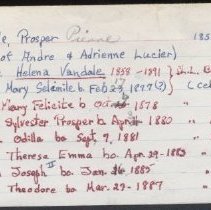 le, Prosper Pierre 185
of Andre & Adrienne Lucier)
Helena Vandale 1858-1891 } St. L.
Mary Selemile b. Feb 23, 1877(?) (ce
Mary Felicite b 1878
Sylvester Prosper b. Apr. 1880 "
Odilla b. Sept. 7, 1881 "
Theresa Emma b. Apr. 29-1883
Joseph II bo Jan. 26, 1885 "
Theodore bo Mar. 27-1887 "